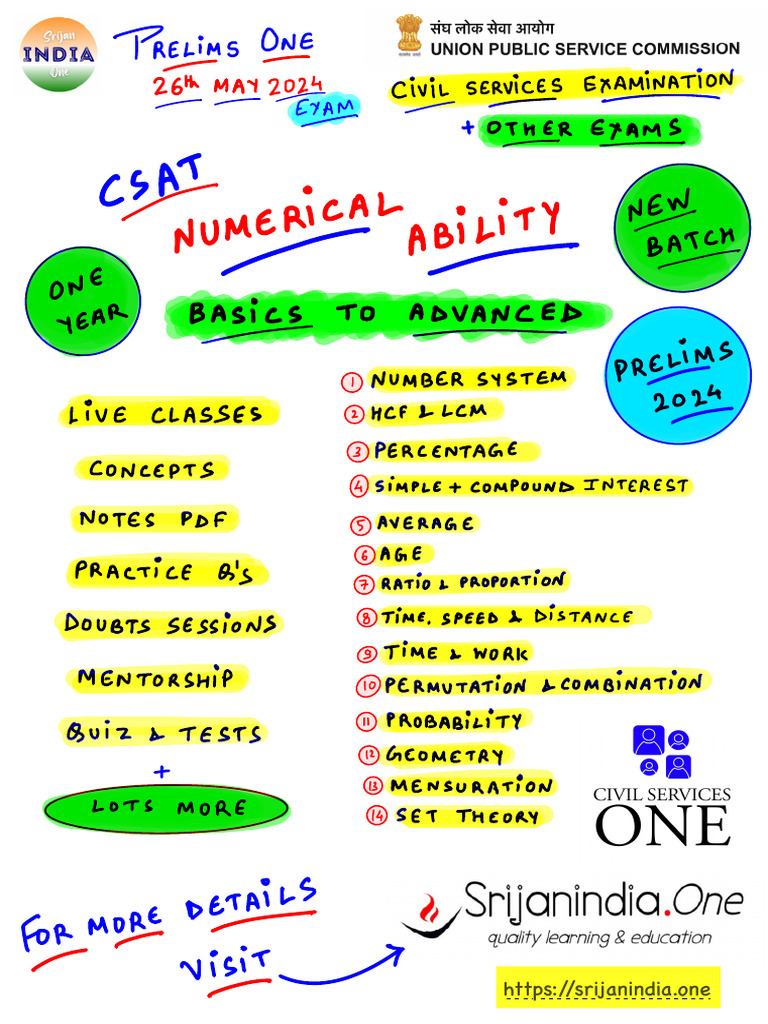 Srijan
INDIA
One
PRELIMS ONE
26th MAY 2024
EXAM
संघ लोक सेवा आयोग
UNION PUBLIC SERVICE COMMISSION
CIVIL SERVICES EXAMINATION
+ OTHER EXAMS
CSAT
NUMERICAL ABILITY
NEW
BATCH
ONE
YEAR
BASICS TO ADVANCED
PRELIMS
2024
LIVE CLASSES
CONCEPTS
NOTES PDF
PRACTICE Q's
DOUBTS SESSIONS
MENTORSHIP
QUIZ & TESTS
+
LOTS MORE
1 NUMBER SYSTEM
2 HCF & LCM
3 PERCENTAGE
4 SIMPLE + COMPOUND INTEREST
5 AVERAGE
6 AGE
7 RATIO & PROPORTION
8 TIME, SPEED & DISTANCE
9 TIME & WORK
10 PERMUTATION & COMBINATION
11 PROBABILITY
12 GEOMETRY
13 MENSURATION
14 SET THEORY
CIVIL SERVICES
ONE
FOR MORE DETAILS
VISIT
Srijanindia.One
quality learning & education
https://srijanindia.one